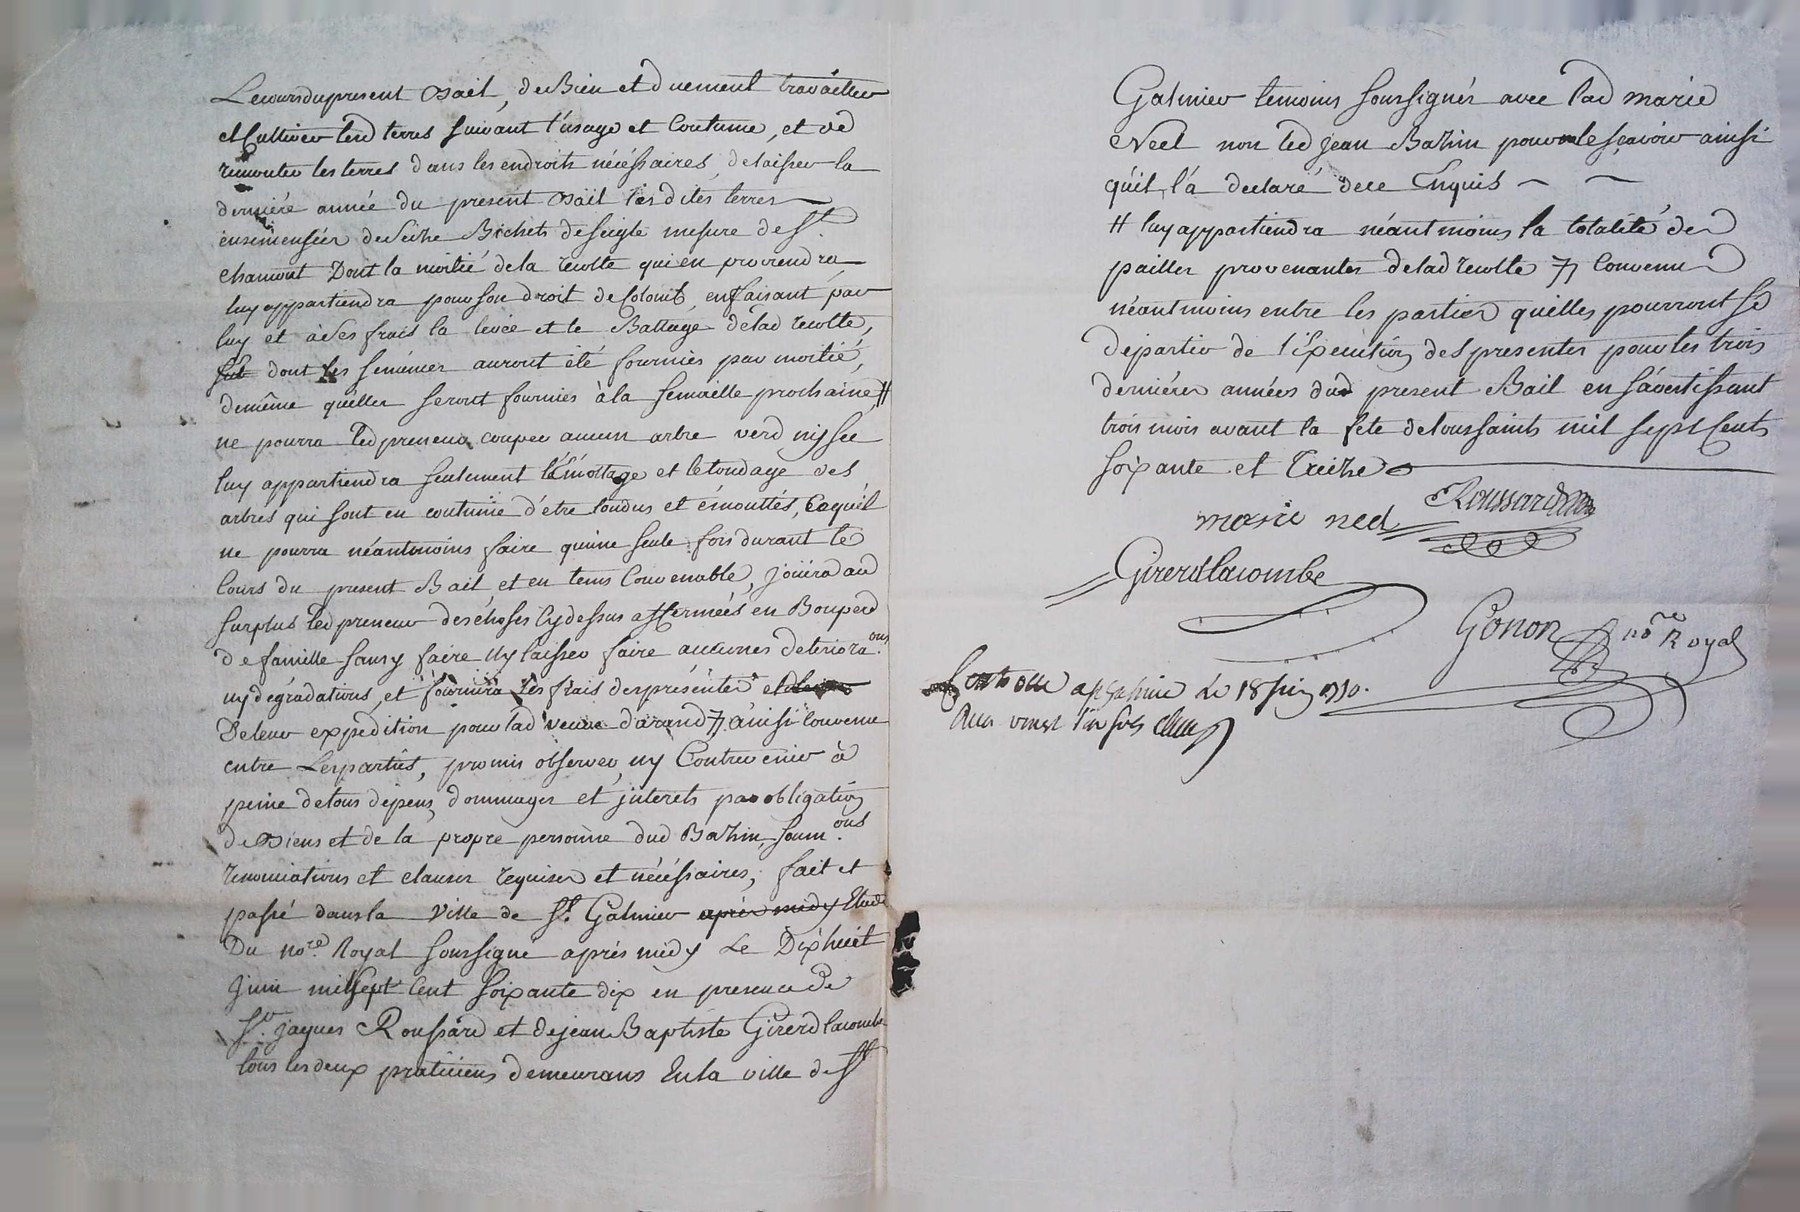 Le cours du present Bail, de Bien et duement travailler
et Cultiver lesd terres suivant l'usage et Coutume, et de
remonter les terres dans les endroits nécéssaires, delaisser la
derniére année du present Bail lesdites terres
ensemenseér de seize Bichets de seigle mesure de St.
chamont Dont la moitié dela recolte qui en proviendra
luy appartiendra pour son droit de Colonie, en faisant par
luy et à ses frais la levée et le Battage delad recolte,
dont les semences auront été fournies par moitié,
demême quelles seront fournies à la semaille prochaine, #
ne pourra led preneur couper aucun arbre verd ny sec
luy appartiendra seulement l'émottage et le tondage des
arbres qui sont en coutume d'etre tondus et émouttés, Ce qu'il
ne pourra néantmoins faire qu'une seule fois durant le
Cours du present Bail, et en tems Convenable, joüira au
surplus led preneur des choses Cy dessus affermées en Bon pere
de famille sans y faire ny laisser faire aucunes deteriora.ons
ny dégradations, et fournira les frais des presentes
De leur expedition pour lad veuve Durand 7/ ainsi Convenu
entre Les parties, promis observer, ny Contrevenir à
peine de tous dépens, dommages et jnterets par obligation
de Biens et de la propre personne dud Bazin, soum.ons
renonciations et clauses requises et nécéssaires, fait et
passé dans la Ville de St. Galmier après midy Etude
Du no.re Royal soussigné après midy Le Dix huit
Juin mil sept Cent soixante dix en presence de
Sr. jaques Roussard et de jean Baptiste Girerd lacombe
tous les deux praticiens demeurans En la ville de St
Galmier temoins soussignés avec lad marie
Neel non led jean Bazin pour ne le sçavoir ainsi
qu'il l'a declaré dece Enquis
# luy appartiendra néantmoins la totalité des
pailles provenantes delad recolte 7/ Convenu
néantmoins entre les parties quelles pourront se
departir de l'éxécution des presentes pour les trois
derniéres années dud present Bail en s'avertissant
trois mois avant la fete de toussaints mil sept Cents
soixante et Treize
marie neel Roussard
Girerd lacombe
Gonon no.re Royal
Controllé a St galmier le 18 juin 1770.
Reçu vingt un sols